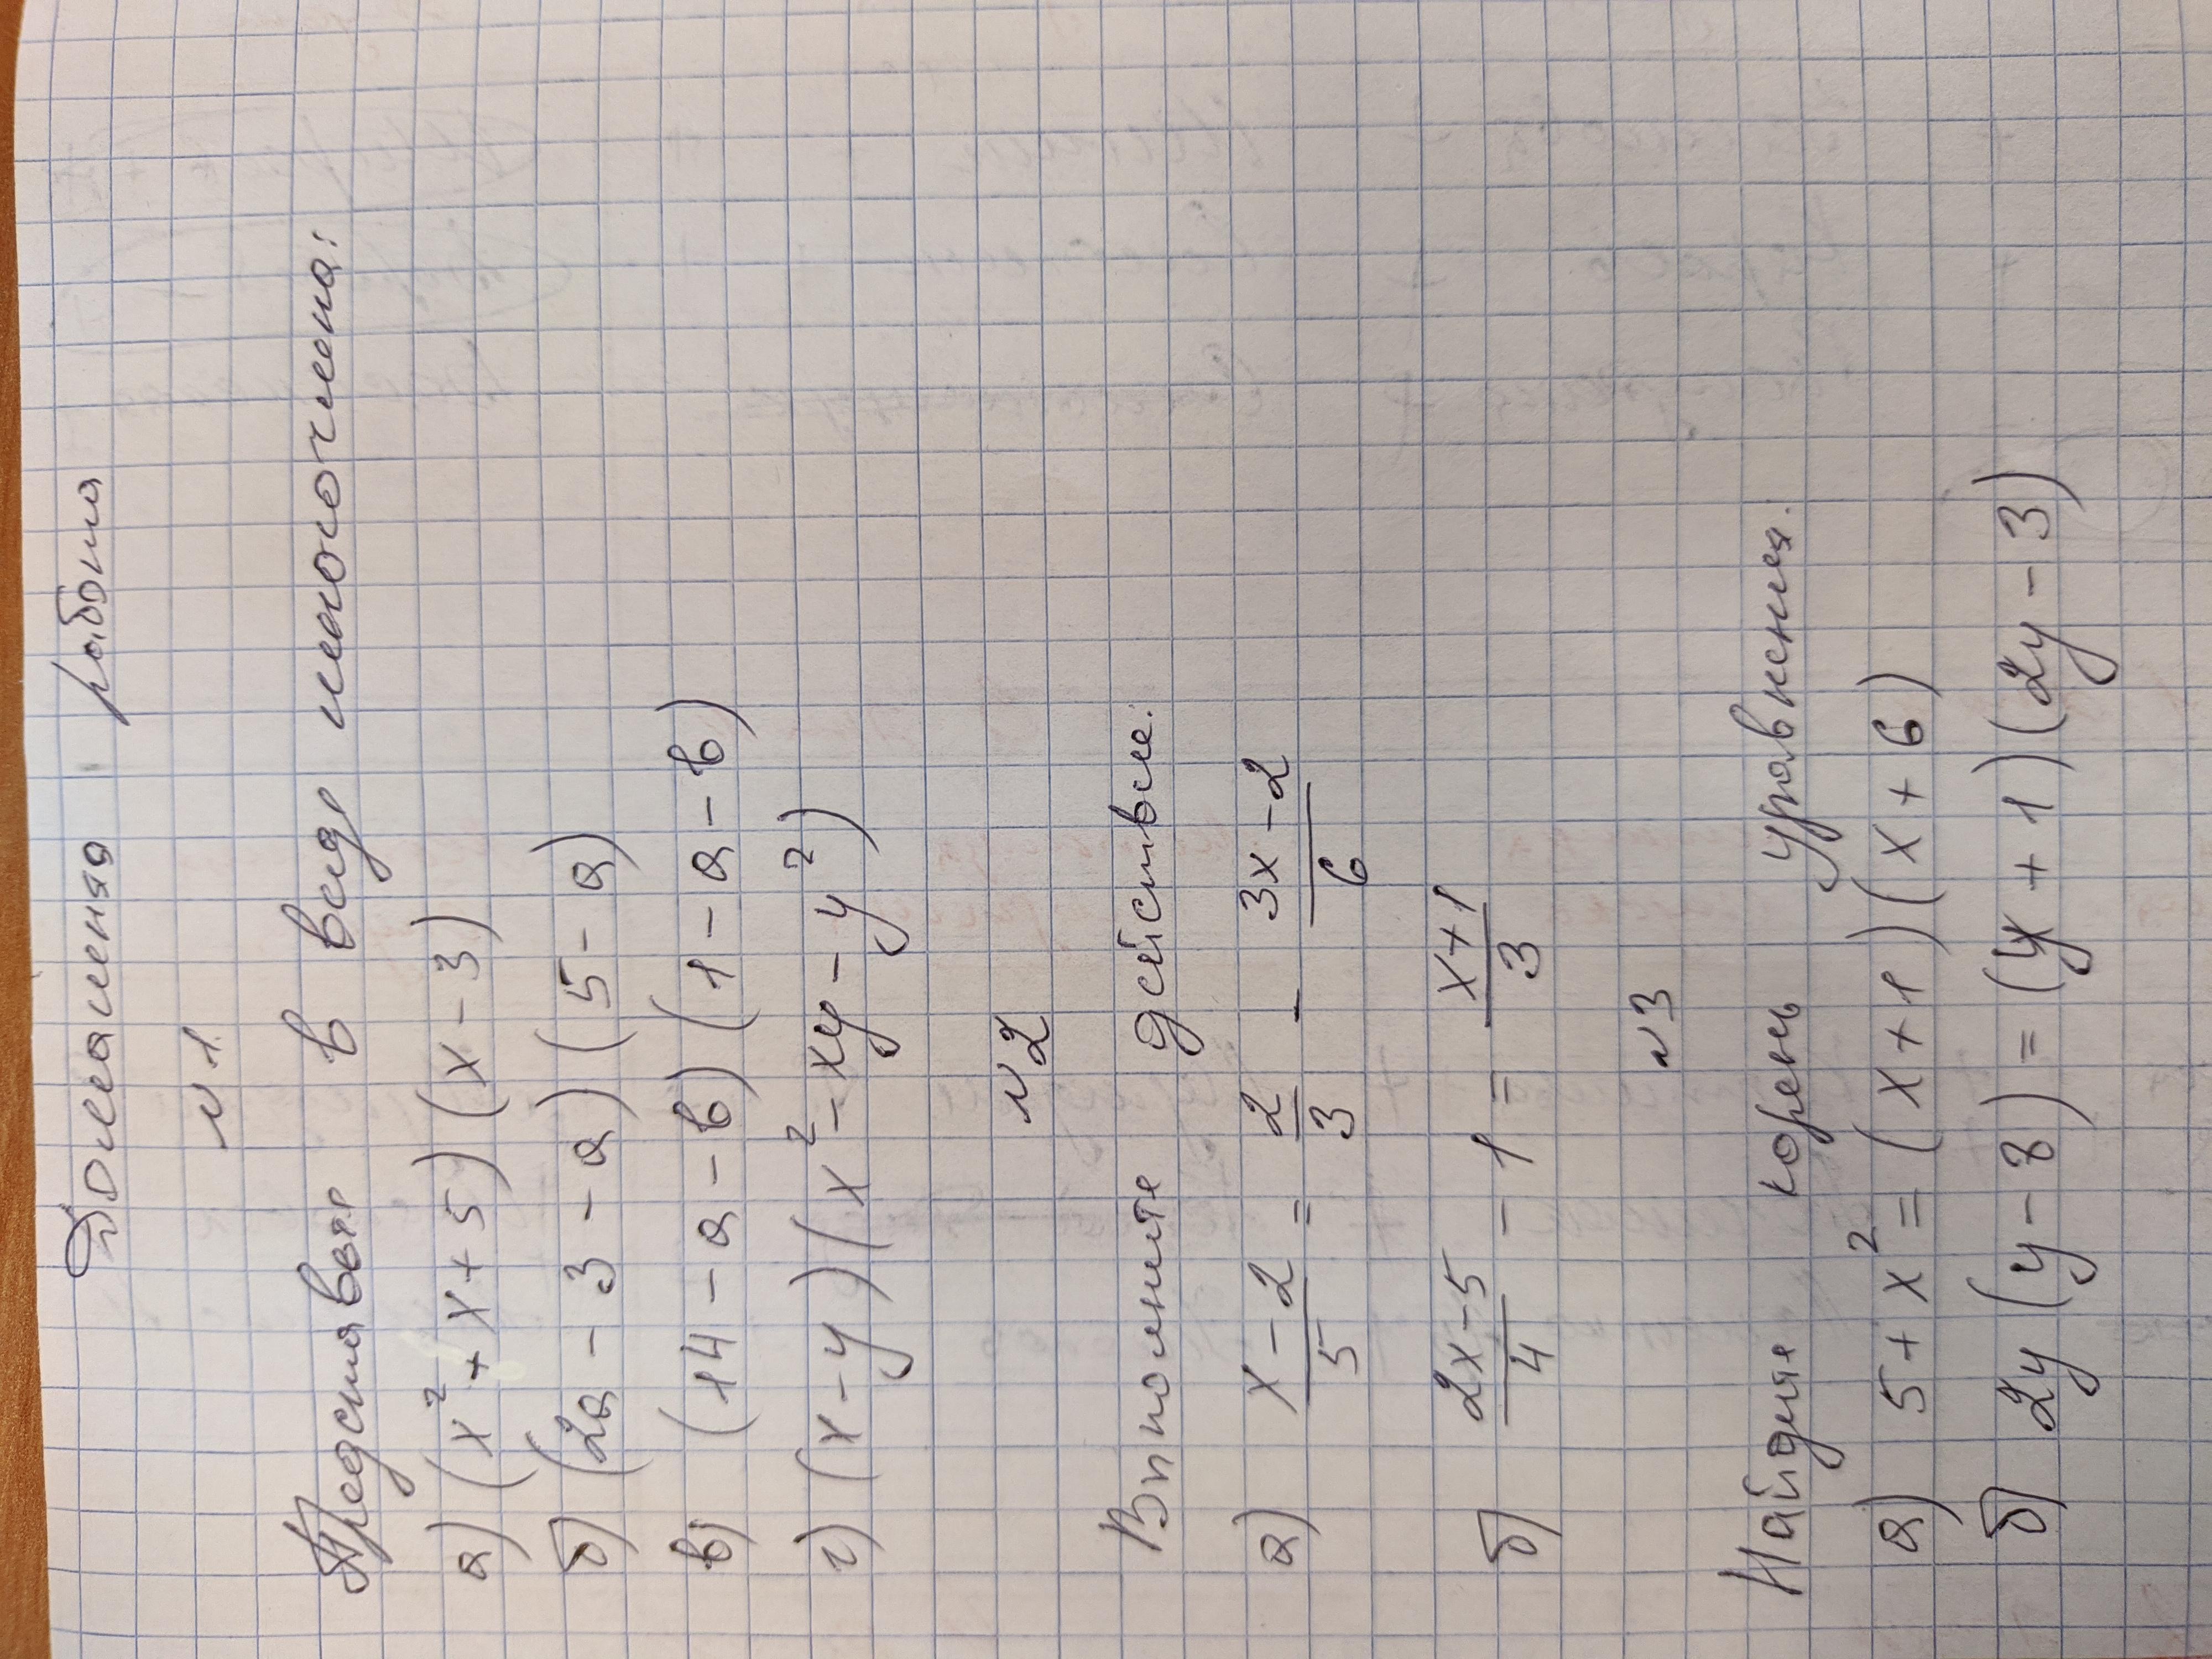 Домашняя работа
N 1
Представьте в виде многочлена:
а) (x² + x + 5)(x - 3)
б) (2a - 3 - a)(5 - a)
в) (14 - a - b)(1 - a - b)
г) (x - y)(x² - xy - y²)
N 2
Выполните действие:
а) \frac{x - 2}{5} = \frac{2}{3} - \frac{3x - 2}{6}
б) \frac{2x - 5}{4} - 1 = \frac{x + 1}{3}
N 3
Найдите корень уравнения.
а) 5 + x² = (x + 1)(x + 6)
б) 2y (y - 8) = (y + 1)(2y - 3)